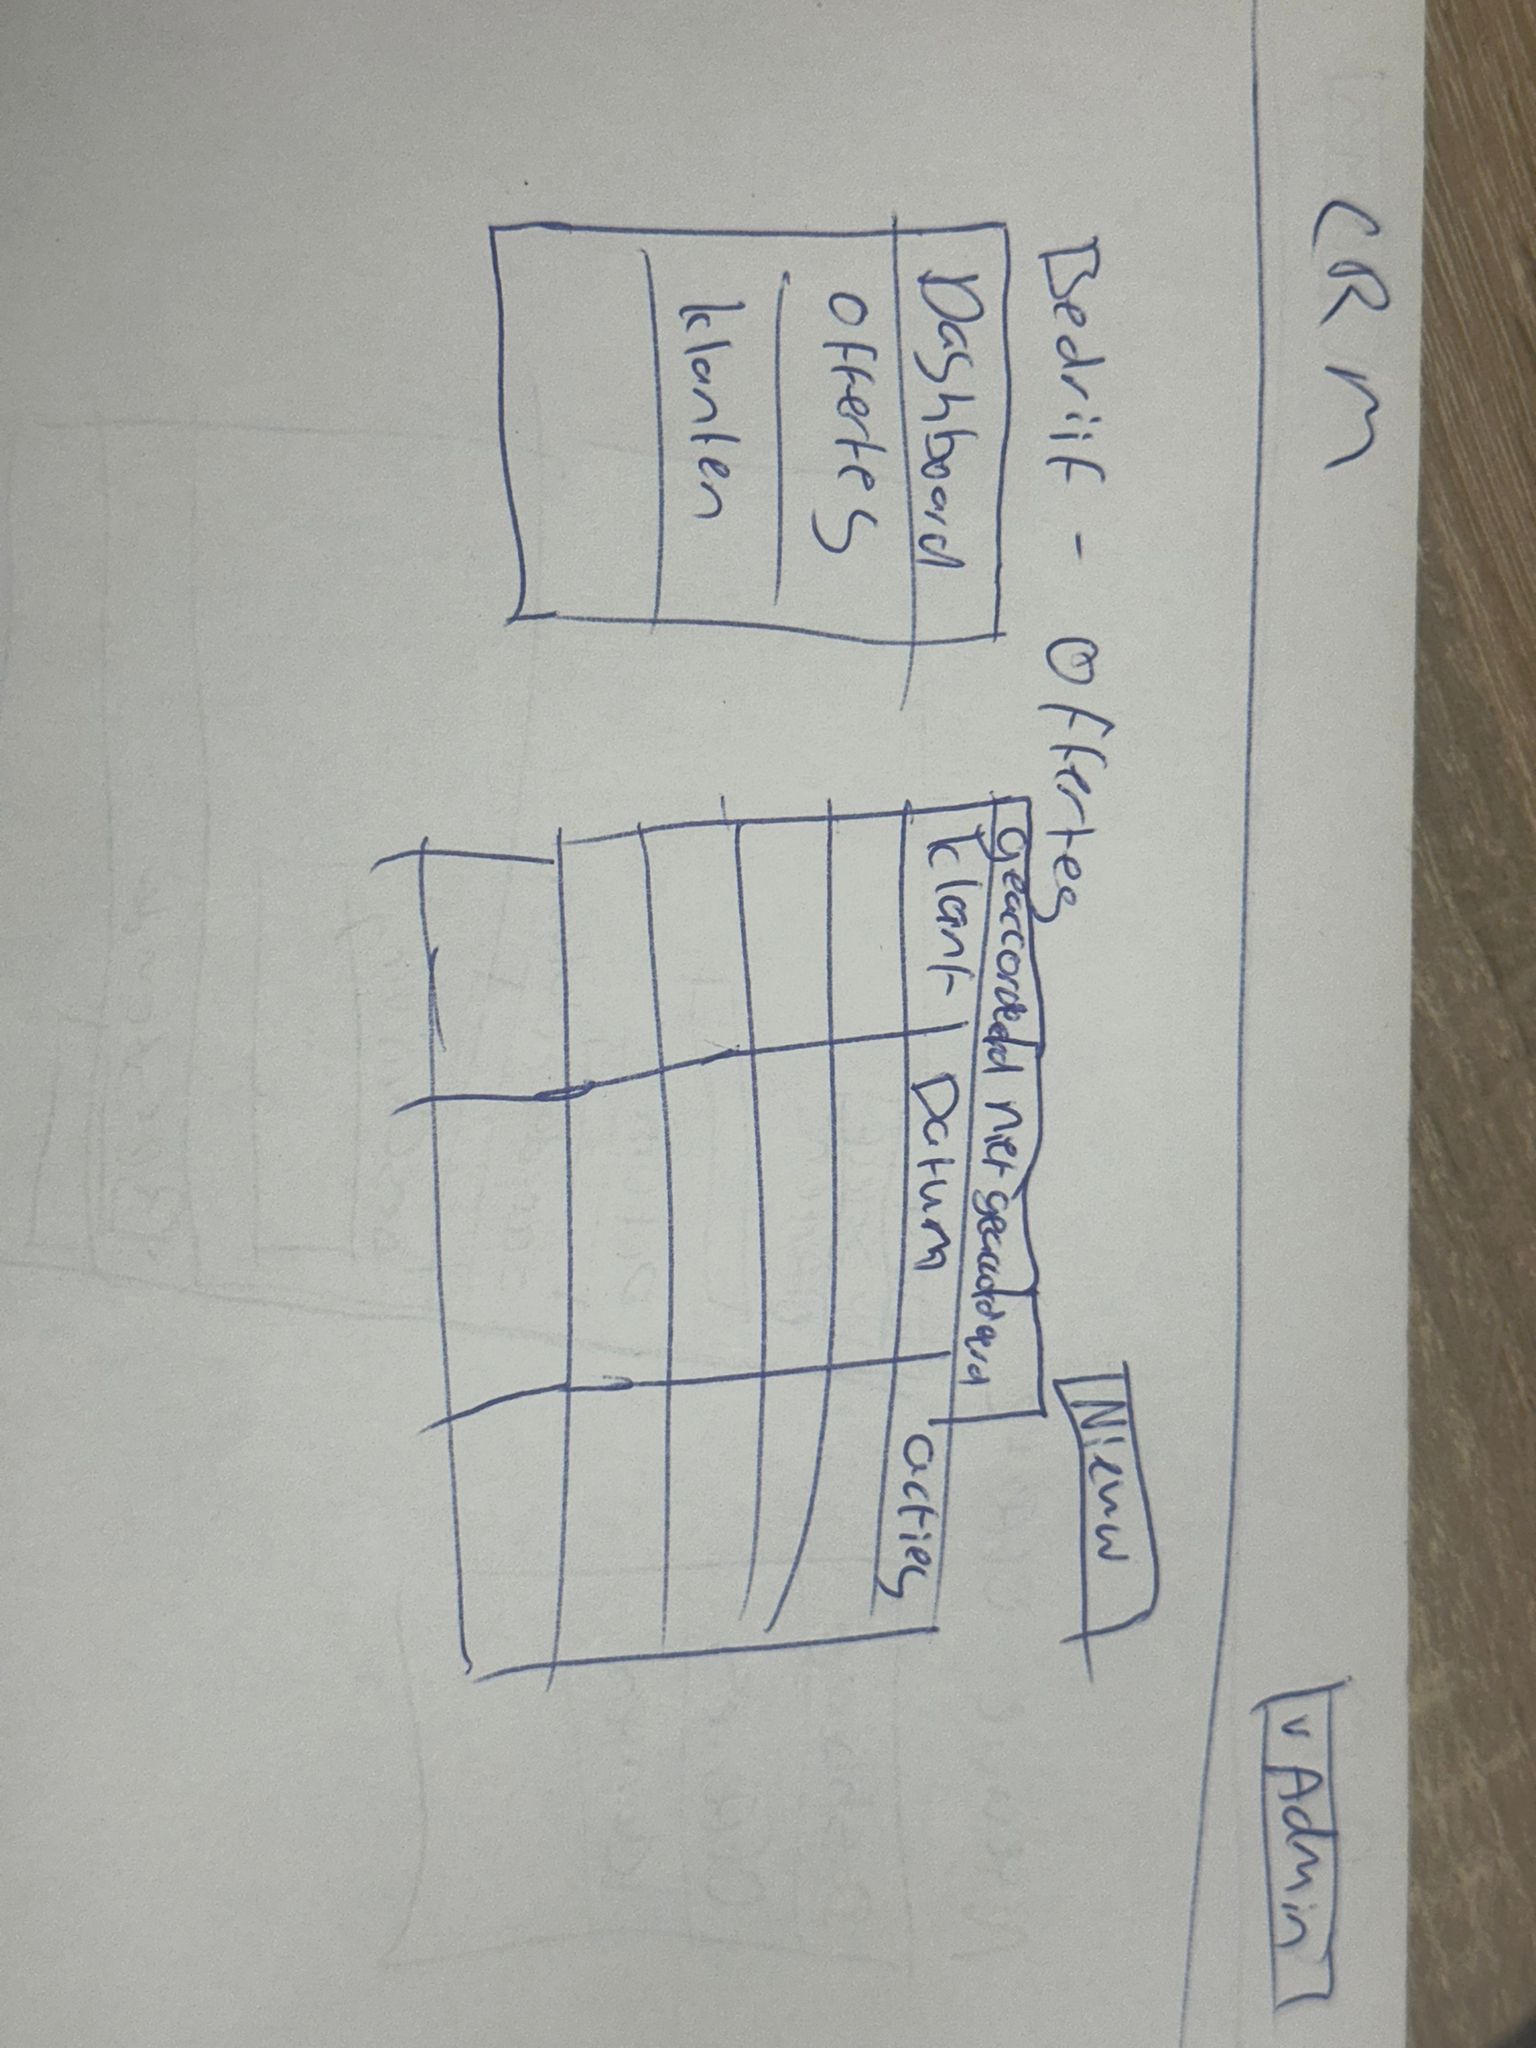 CRM
v Admin
Bedrijf - Offertes
Nieuw
Dashboard
Offertes
klanten
geaccordeerd niet geaccordeerd
klant Datum acties